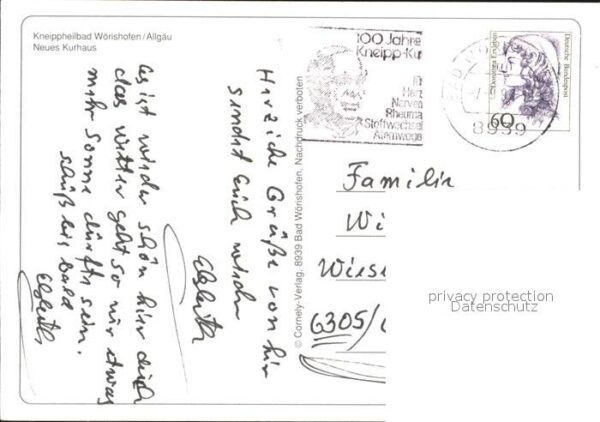 Kneippheilbad Wörishofen/Allgäu
Neues Kurhaus
Herzliche Grüße von hier
sendet Euch wieder
Elsbeth
es ist wieder schön hier auch
das Wetter geht so nur etwas
mehr Sonne dürfte sein.
bis bald
Elsbeth
© Cornely-Verlag, 8939 Bad Wörishofen, Nachdruck verboten
100 Jahre
Kneipp-Kur
für
Herz
Nerven
Rheuma
Stoffwechsel
Atemwege
8939
60
Deutsche Bundespost
Familie
Wi
Wiese
6305/
privacy protection
Datenschutz